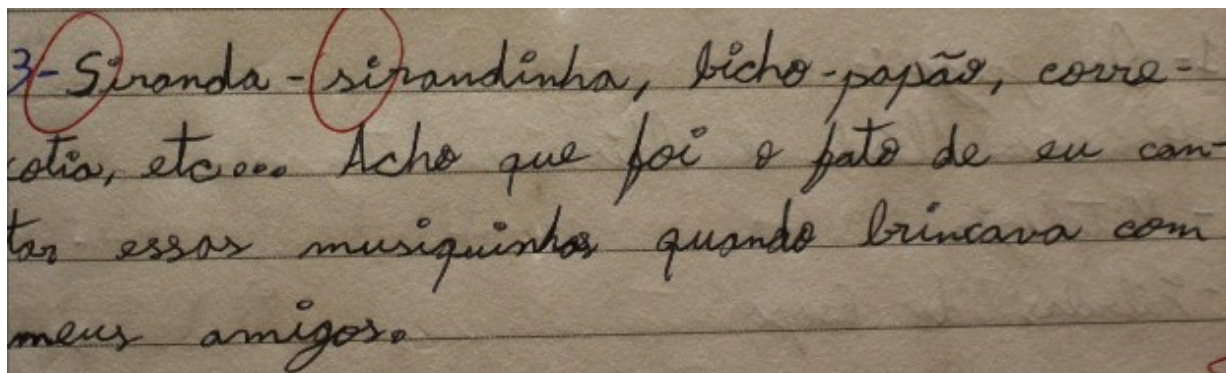 3- Siranda - sirandinha, bicho-papão, corre-
cotia, etc... Acho que foi o fato de eu can-
tar essas musiquinhas quando brincava com
meus amigos.